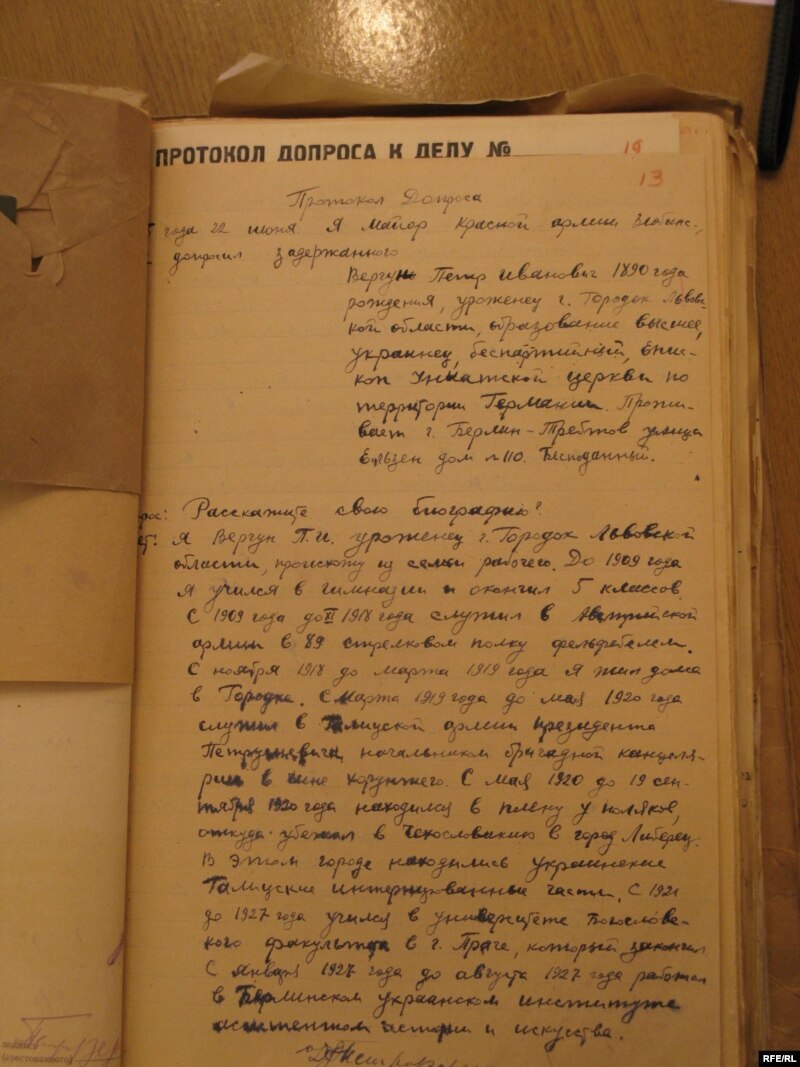 ПРОТОКОЛ ДОПРОСА К ДЕЛУ №
19
13
Протокол Допроса
года 22 июня Я майор Красной армии
допросил задержанного
Вергун Петр Иванович 1890 года
рождения, уроженец г. Городок Львовс-
кой области, образование высшее,
украинец, беспартийный, Епис-
коп Униатской церкви по
территории Германии. Прожи-
вает г. Берлин-Трептов улица
Ельзен дом №110. Бесподанный.
рос: Расскажите свою биографию?
ет: Я Вергун П.И. уроженец г. Городок Львовской
области, происхожу из семьи рабочего. До 1909 года
я учился в гимназии и окончил 5 классов.
С 1909 года до XI 1918 года служил в Австрийской
армии в 89 стрелковом полку фельдфебелем.
С ноября 1918 до марта 1919 года я жил дома
в Городке. С марта 1919 года до мая 1920 года
служил в Галицской армии президента
Петрушевича, начальником бригадной канцеля-
рии в чине хорунжего. С мая 1920 до 19 сен-
тября 1920 года находился в плену у поляков,
откуда убежал в Чехословакию в город Либерец.
В этом городе находились украинские
Галицские интернированные части. С 1921
до 1927 года учился в университете Богословс-
кого факультета в г. Праге, который закончил
С января 1927 года до августа 1927 года работал
в Берлинском украинском институте
асистентом истории и искусства.
подпись
(арестованного)
RFE/RL